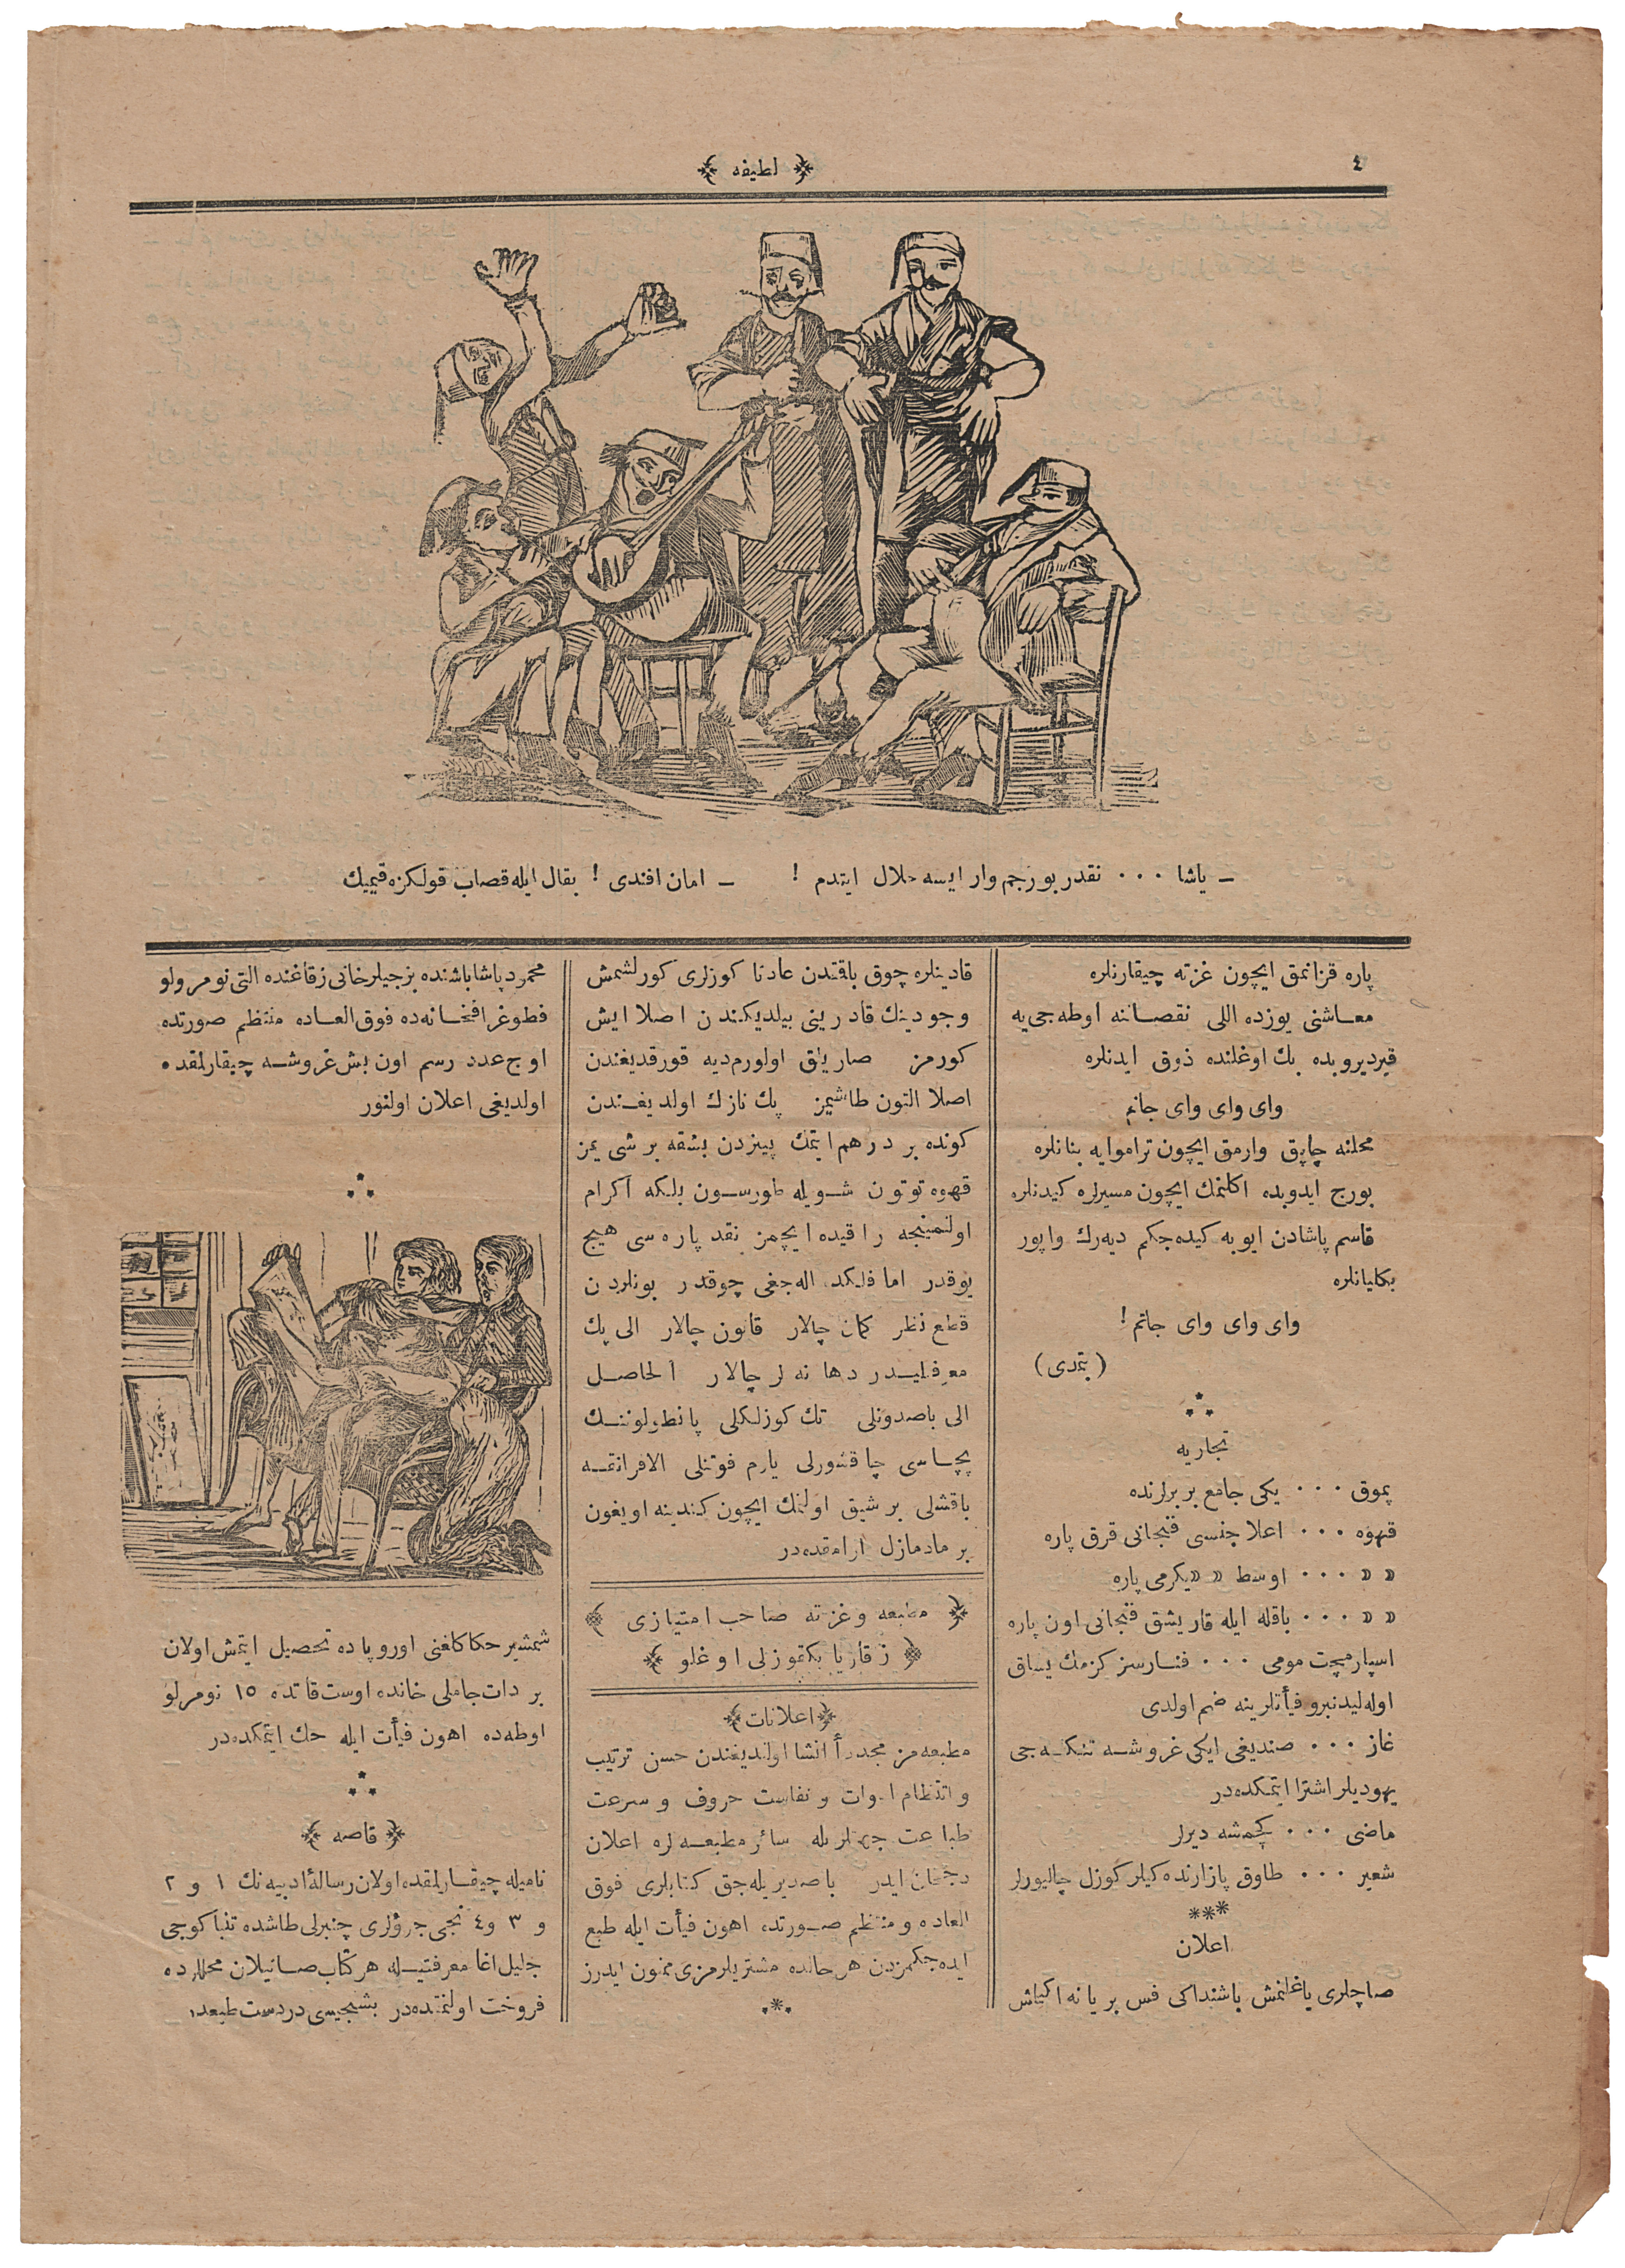 ٤
لطيفه
ـ ياشا ٠٠٠ نقدر بورجم وار ايسه حلال ايتدم ! ـ امان افندى ! بقال ايله قصاب قولكزه قيميك
پاره قزانمق ايچون غزته چيقارنلره
معاشنى يوزده اللى نقصاننه اوطه جى يه
قيرديروبده بك اوغلنده ذوق ايدنلره
واى واى واى جانم
محلنه چاپق وارمق ايچون تراموايه بنانلره
بورج ايدوبده اكلنمك ايچون مسيرلره كيدنلره
قاسم پاشادن ايوبه كيده جكم ديه رك واپور
بكليانلره
واى واى واى جانم !
(بتمدى)
تجاريه
پموق ٠٠٠ يكى جامع بربرلرنده
قهوه ٠٠٠ اعلا جنسى فنجانى قرق پاره
» » ٠٠٠ اوسط » » يكرمى پاره
» » ٠٠٠ باقله ايله قاريشق فنجانى اون پاره
اسپارمچت مومى ٠٠٠ فنارسز كزمك يساق
اوله ليدنبرو فيأتلرينه ضم اولدى
غاز ٠٠٠ صنديغى ايكى غروشه تنكه جى
يهوديلر اشترا ايتمكده در
ماضى ٠٠٠ كچمشه ديرلر
شعير ٠٠٠ طاوق پازارنده كيلر كوزل چاليورلر
***
اعلان
صاچلرى ياغلنمش باشنداكى فس بر يانه اكيلمش
قادينلره چوق باقتدن عادتا كوزلرى كورلشمش
وجودينك قادرينى بيلديكندن اصلا ايش
كورمز صاريلق اولورم ديه قورقديغندن
اصلا التون طاشيمز پك نازك اولديغندن
كونده بر درهم ايتمك پينزدن بشقه بر شى يمز
قهوه توتون شويله طورسون بلكه اكرام
اولنمينجه راقيده ايچمز نقد پاره سى هيج
يوقدر اما فلكده اله جغى چوقدر بونلردن
قطع نظر كمان چالار قانون چالار الى پك
معرفليدر دها نه لر چالار الحاصل
الى باصدونلى تك كوزلكلى پانطولوننك
پچاسى چاقشورلى يارم فوتنلى الافرانقه
باقشلى بر شيق اولنمك ايچون كندينه اويغون
بر مادمازل ارامقده در
مطبعه و غزته صاحب امتيازى
زقاريا بكتوزلى اوغلو
اعلانات
مطبعه مز مجدداً انشا اولنديغندن حسن ترتيب
و انتظام ادوات و نفاست حروف و سرعت
طباعت جهتلريله سائر مطبعه لره اعلان
رجحان ايدر باصديريله جق كتابلرى فوق
العاده و منتظم صورتده اهون فيأت ايله طبع
ايده جكمزدن هر حالده مشتريلرمزى ممنون ايدرز
محمود پاشا باشنده بزجيلر خانى زقاغنده التى نومرولو
فطوغرافخانه ده فوق العاده منتظم صورتده
اوج عدد رسم اون بش غروشه چيقارلمقده
اولديغى اعلان اولنور
شمشير حكاكلغنى اوروپاده تحصيل ايتمش اولان
بر ذات جاملى خانده اوست قاتده ١٥ نومرلو
اوطه ده اهون فيأت ايله حك ايتمكده در
قاصه
ناميله چيقارلمقده اولان رسالهٔ ادبيه نك ١ و ٢
و ٣ و٤ نجى جزؤلرى چنبرلى طاشده تنباكوجى
جليل اغا معرفتيله هر كتاب صاتيلان محللرده
فروخت اولنمقده در بشنجيسى دردست طبعدر